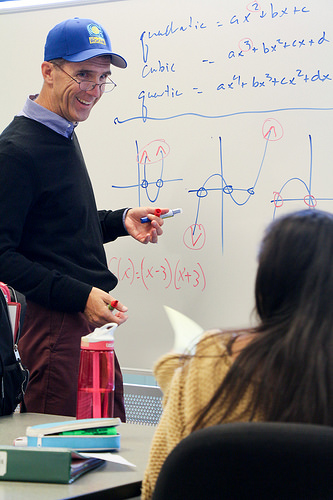 quadratic = ax²+bx+c
cubic = ax³+bx²+cx+d
quartic = ax⁴+bx³+cx²+dx
(x)=(x-3)(x+3)